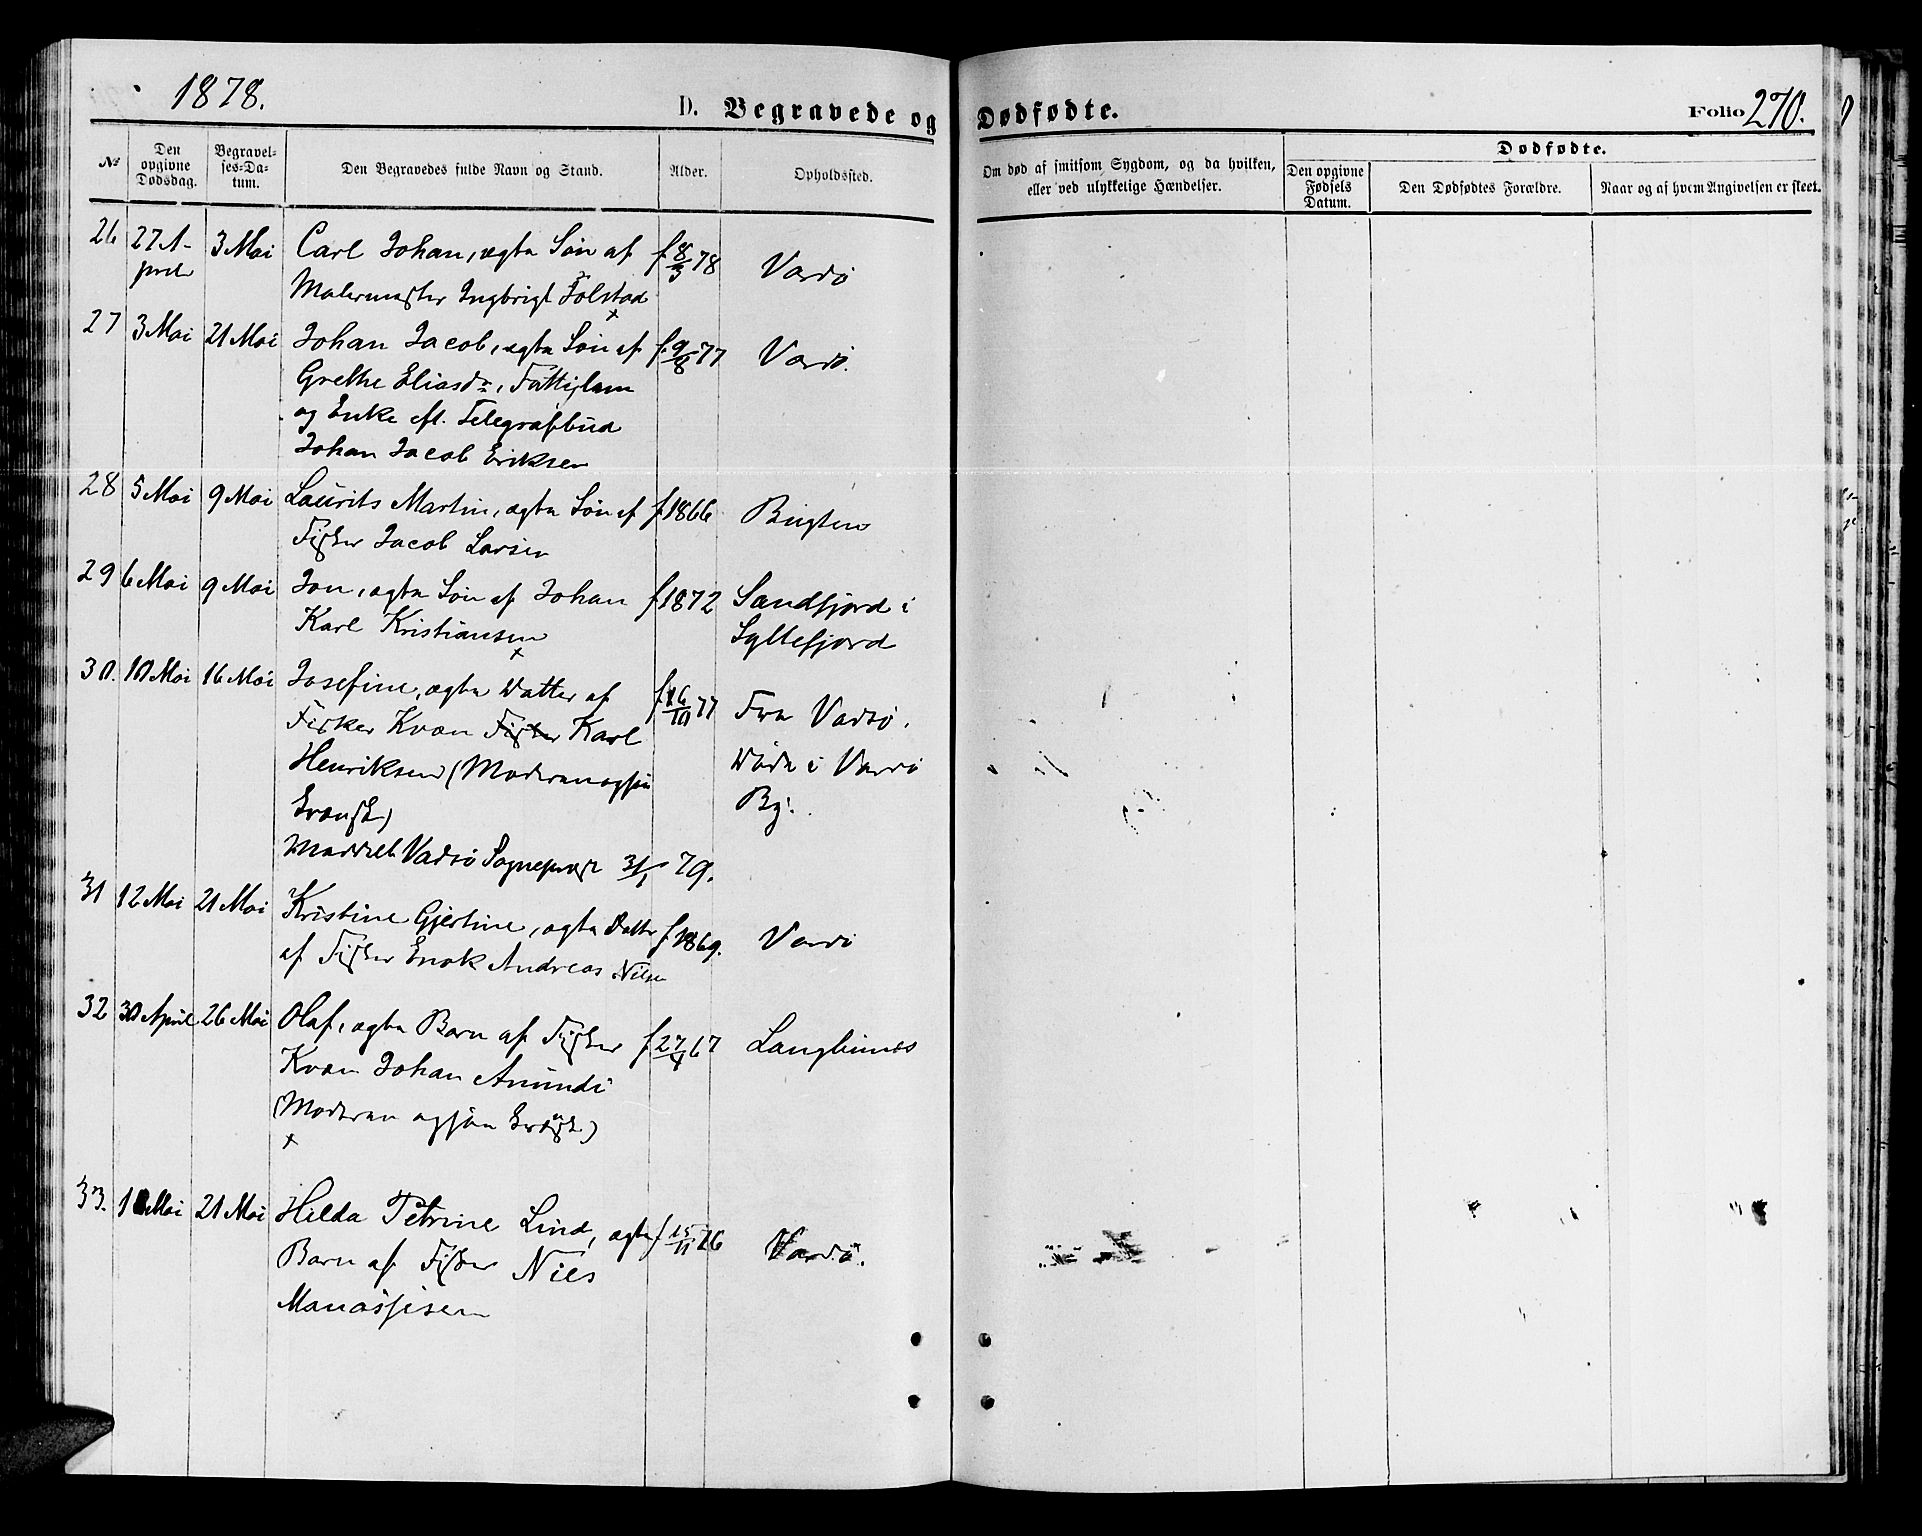 1878.
D. Begravede og Dødfødte.
Folio 270.
№
Den opgivne Dødsdag.
Begravel-ses-Da-tum.
Den Begravedes fulde Navn og Stand.
Alder.
Opholdssted.
Om død af smitsom Sygdom, og da hvilken,
eller ved ulykkelige Hændelser.
Dødfødte.
Den opgivne Fødsels Datum.
Den Dødfødtes Forældre.
Naar og af hvem Angivelsen er skeet.
26 27 A- 3 Mai Carl Johan, ægte Søn af f 8/3 78 Vardø
pril Malermester Ingbrigt Tolstad
27 3 Mai 21 Mai Johan Jacob, ægte Søn af f. 9/8 77 Vardø.
Grethe Eliasdr, Fattiglem
og Enke eft. Telegrafbud
Johan Jacob Eriksen
28 5 Mai 9 Mai Laurits Martin, ægte Søn af f 1866 Bugten
Fisker Jacob Larsen
29 6 Mai 9 Mai Jon, ægte Søn af Johan f 1872 Sandfjord i
Karl Kristiansen Syltefjord
30. 10 Mai 16 Mai Josefine, ægte Datter af f 16/10 77 Fra Vadsø.
Fisker Kvæn Fisker Karl Døde i Vardø
Henriksen (Moderen ogsaa By.
kvænsk)
Meddelt Vadsø Sognepræst 31/1 79.
31 12 Mai 21 Mai Kristine Gjertine, ægte Datter f 1869. Vardø
af Fisker Enok Andreas Nilsen
32 30 April 26 Mai Olaf, ægte Barn af Fisker f 27/4 67 Langbunes
Kvæn Johan Anundi
(Moderen ogsaa kvænsk.)
33. 10 Mai 21 Mai Hilda Petrine Lind, ægte f 15/11 76 Vardø.
Barn af Fisker Nils
Manassisen